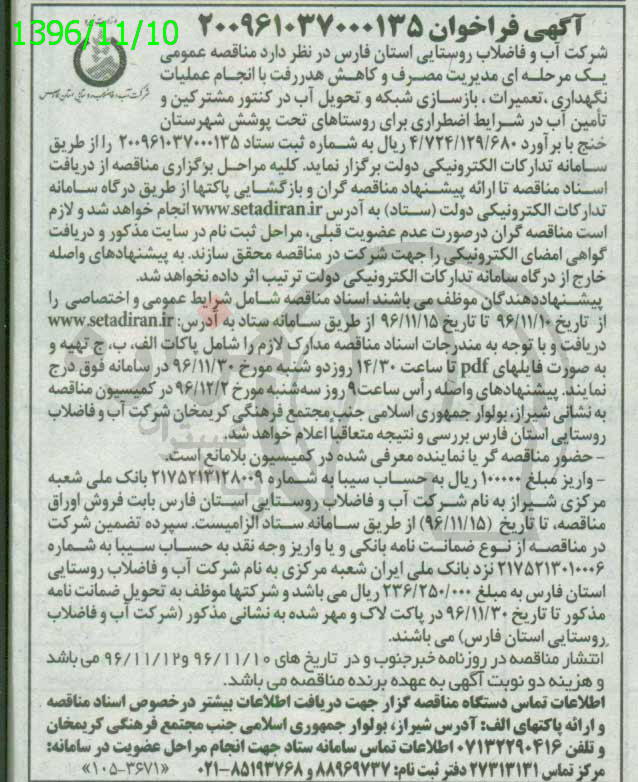 1396/11/10
آگهی فراخوان ۲۰۰۹۶۱۰۳۷۰۰۰۱۳۵
شرکت آب و فاضلاب روستایی استان فارس در نظر دارد مناقصه عمومی
یک مرحله ای مدیریت مصرف و کاهش هدررفت با انجام عملیات
نگهداری، تعمیرات، بازسازی شبکه و تحویل آب در کنتور مشترکین و
شرکت آب و فاضلاب روستایی استان فارس
تأمین آب در شرایط اضطراری برای روستاهای تحت پوشش شهرستان
خنج با برآورد ۴/۷۲۴/۱۲۹/۶۸۰ ریال به شماره ثبت ستاد ۲۰۰۹۶۱۰۳۷۰۰۰۱۳۵ را از طریق
سامانه تدارکات الکترونیکی دولت برگزار نماید. کلیه مراحل برگزاری مناقصه از دریافت
اسناد مناقصه تا ارائه پیشنهاد مناقصه گران و بازگشایی پاکتها از طریق درگاه سامانه
تدارکات الکترونیکی دولت (ستاد) به آدرس www.setadiran.ir انجام خواهد شد و لازم
است مناقصه گران درصورت عدم عضویت قبلی، مراحل ثبت نام در سایت مذکور و دریافت
گواهی امضای الکترونیکی را جهت شرکت در مناقصه محقق سازند. به پیشنهادهای واصله
خارج از درگاه سامانه تدارکات الکترونیکی دولت ترتیب اثر داده نخواهد شد.
پیشنهاددهندگان موظف می باشند اسناد مناقصه شامل شرایط عمومی و اختصاصی را
از تاریخ ۹۶/۱۱/۱۰ تا تاریخ ۹۶/۱۱/۱۵ از طریق سامانه ستاد به آدرس: www.setadiran.ir
دریافت و با توجه به مندرجات اسناد مناقصه مدارک لازم را شامل پاکات الف، ب، ج تهیه و
به صورت فایلهای pdf تا ساعت ۱۴/۳۰ روز دو شنبه مورخ ۹۶/۱۱/۳۰ در سامانه فوق درج
نمایند. پیشنهادهای واصله رأس ساعت ۹ روز سه شنبه مورخ ۹۶/۱۲/۲ در کمیسیون مناقصه
به نشانی شیراز، بولوار جمهوری اسلامی جنب مجتمع فرهنگی کریمخان شرکت آب و فاضلاب
روستایی استان فارس بررسی و نتیجه متعاقباً اعلام خواهد شد.
- حضور مناقصه گر یا نماینده معرفی شده در کمیسیون بلامانع است.
- واریز مبلغ ۱۰۰۰۰۰۰ ریال به حساب سیبا به شماره ۲۱۷۵۲۱۳۱۲۸۰۰۹ بانک ملی شعبه
مرکزی شیراز به نام شرکت آب و فاضلاب روستایی استان فارس بابت فروش اوراق
مناقصه، تا تاریخ (۹۶/۱۱/۱۵) از طریق سامانه ستاد الزامیست. سپرده تضمین شرکت
در مناقصه از نوع ضمانت نامه بانکی و یا واریز وجه نقد به حساب سیبا به شماره
۲۱۷۵۲۱۳۰۱۰۰۰۶ نزد بانک ملی ایران شعبه مرکزی به نام شرکت آب و فاضلاب روستایی
استان فارس به مبلغ ۲۳۶/۲۵۰/۰۰۰ ریال می باشد و شرکتها موظف به تحویل ضمانت نامه
مذکور تا تاریخ ۹۶/۱۱/۳۰ در پاکت لاک و مهر شده به نشانی مذکور (شرکت آب و فاضلاب
روستایی استان فارس) می باشند.
انتشار مناقصه در روزنامه خبرجنوب و در تاریخ های ۹۶/۱۱/۱۰ و ۹۶/۱۱/۱۲ می باشد
و هزینه دو نوبت آگهی به عهده برنده مناقصه می باشد.
اطلاعات تماس دستگاه مناقصه گزار جهت دریافت اطلاعات بیشتر درخصوص اسناد مناقصه
و ارائه پاکتهای الف: آدرس شیراز، بولوار جمهوری اسلامی جنب مجتمع فرهنگی کریمخان
و تلفن ۰۷۱۳۲۲۹۰۴۱۶ اطلاعات تماس سامانه ستاد جهت انجام مراحل عضویت در سامانه:
مرکز تماس ۲۷۳۱۳۱۳۱ دفتر ثبت نام: ۸۸۹۶۹۷۳۷ و ۸۵۱۹۳۷۶۸-۰۲۱ «۱۰۵-۳۶۷۱»